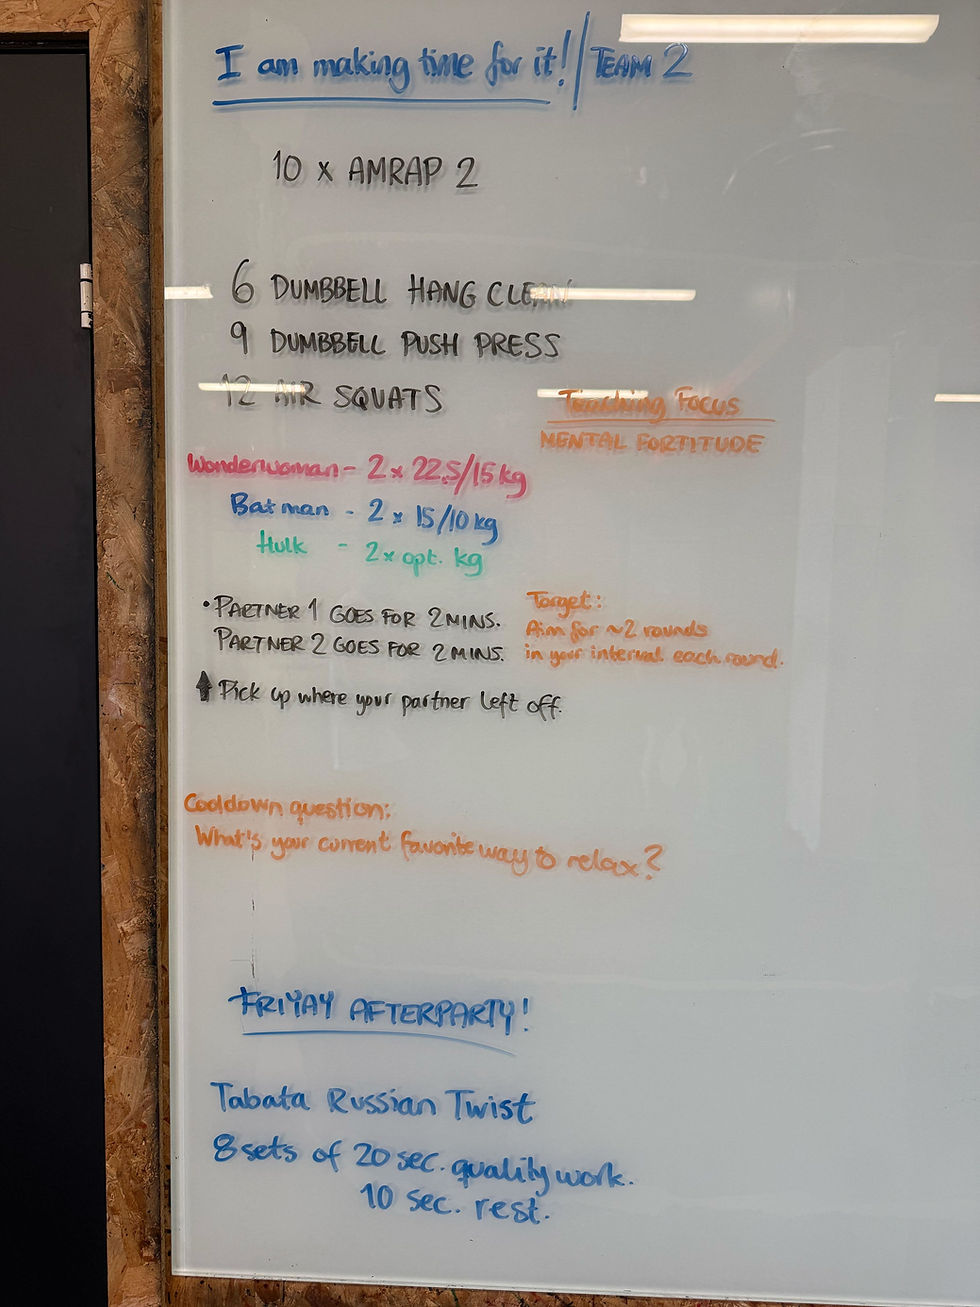 I am making time for it! / TEAM 2
10 x AMRAP 2
6 DUMBBELL HANG CLEAN
9 DUMBBELL PUSH PRESS
12 AIR SQUATS
Teaching FOCUS
MENTAL FORTITUDE
Wonderwoman - 2 x 22.5/15 kg
Batman - 2 x 15/10 kg
Hulk - 2 x opt. kg
• PARTNER 1 GOES FOR 2 MINS.
PARTNER 2 GOES FOR 2 MINS.
Target:
Aim for ~2 rounds
in your interval each round.
↑ Pick up where your partner left off.
Cooldown question:
What's your current favorite way to relax?
FRIYAY AFTERPARTY!
Tabata Russian Twist
8 sets of 20 sec. quality work.
10 sec. rest.